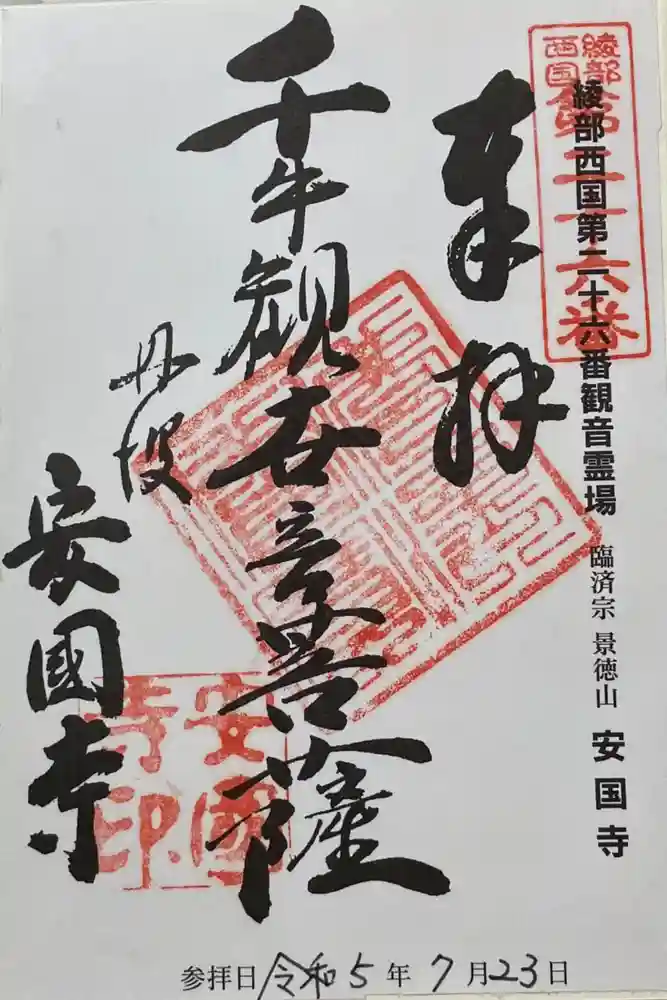 綾部西国
第二十六番
綾部西国第二十六番観音霊場 臨済宗 景徳山 安国寺
奉拝
千手観世音菩薩
丹波
安國寺
安國寺印
参拝日 令和5年7月23日